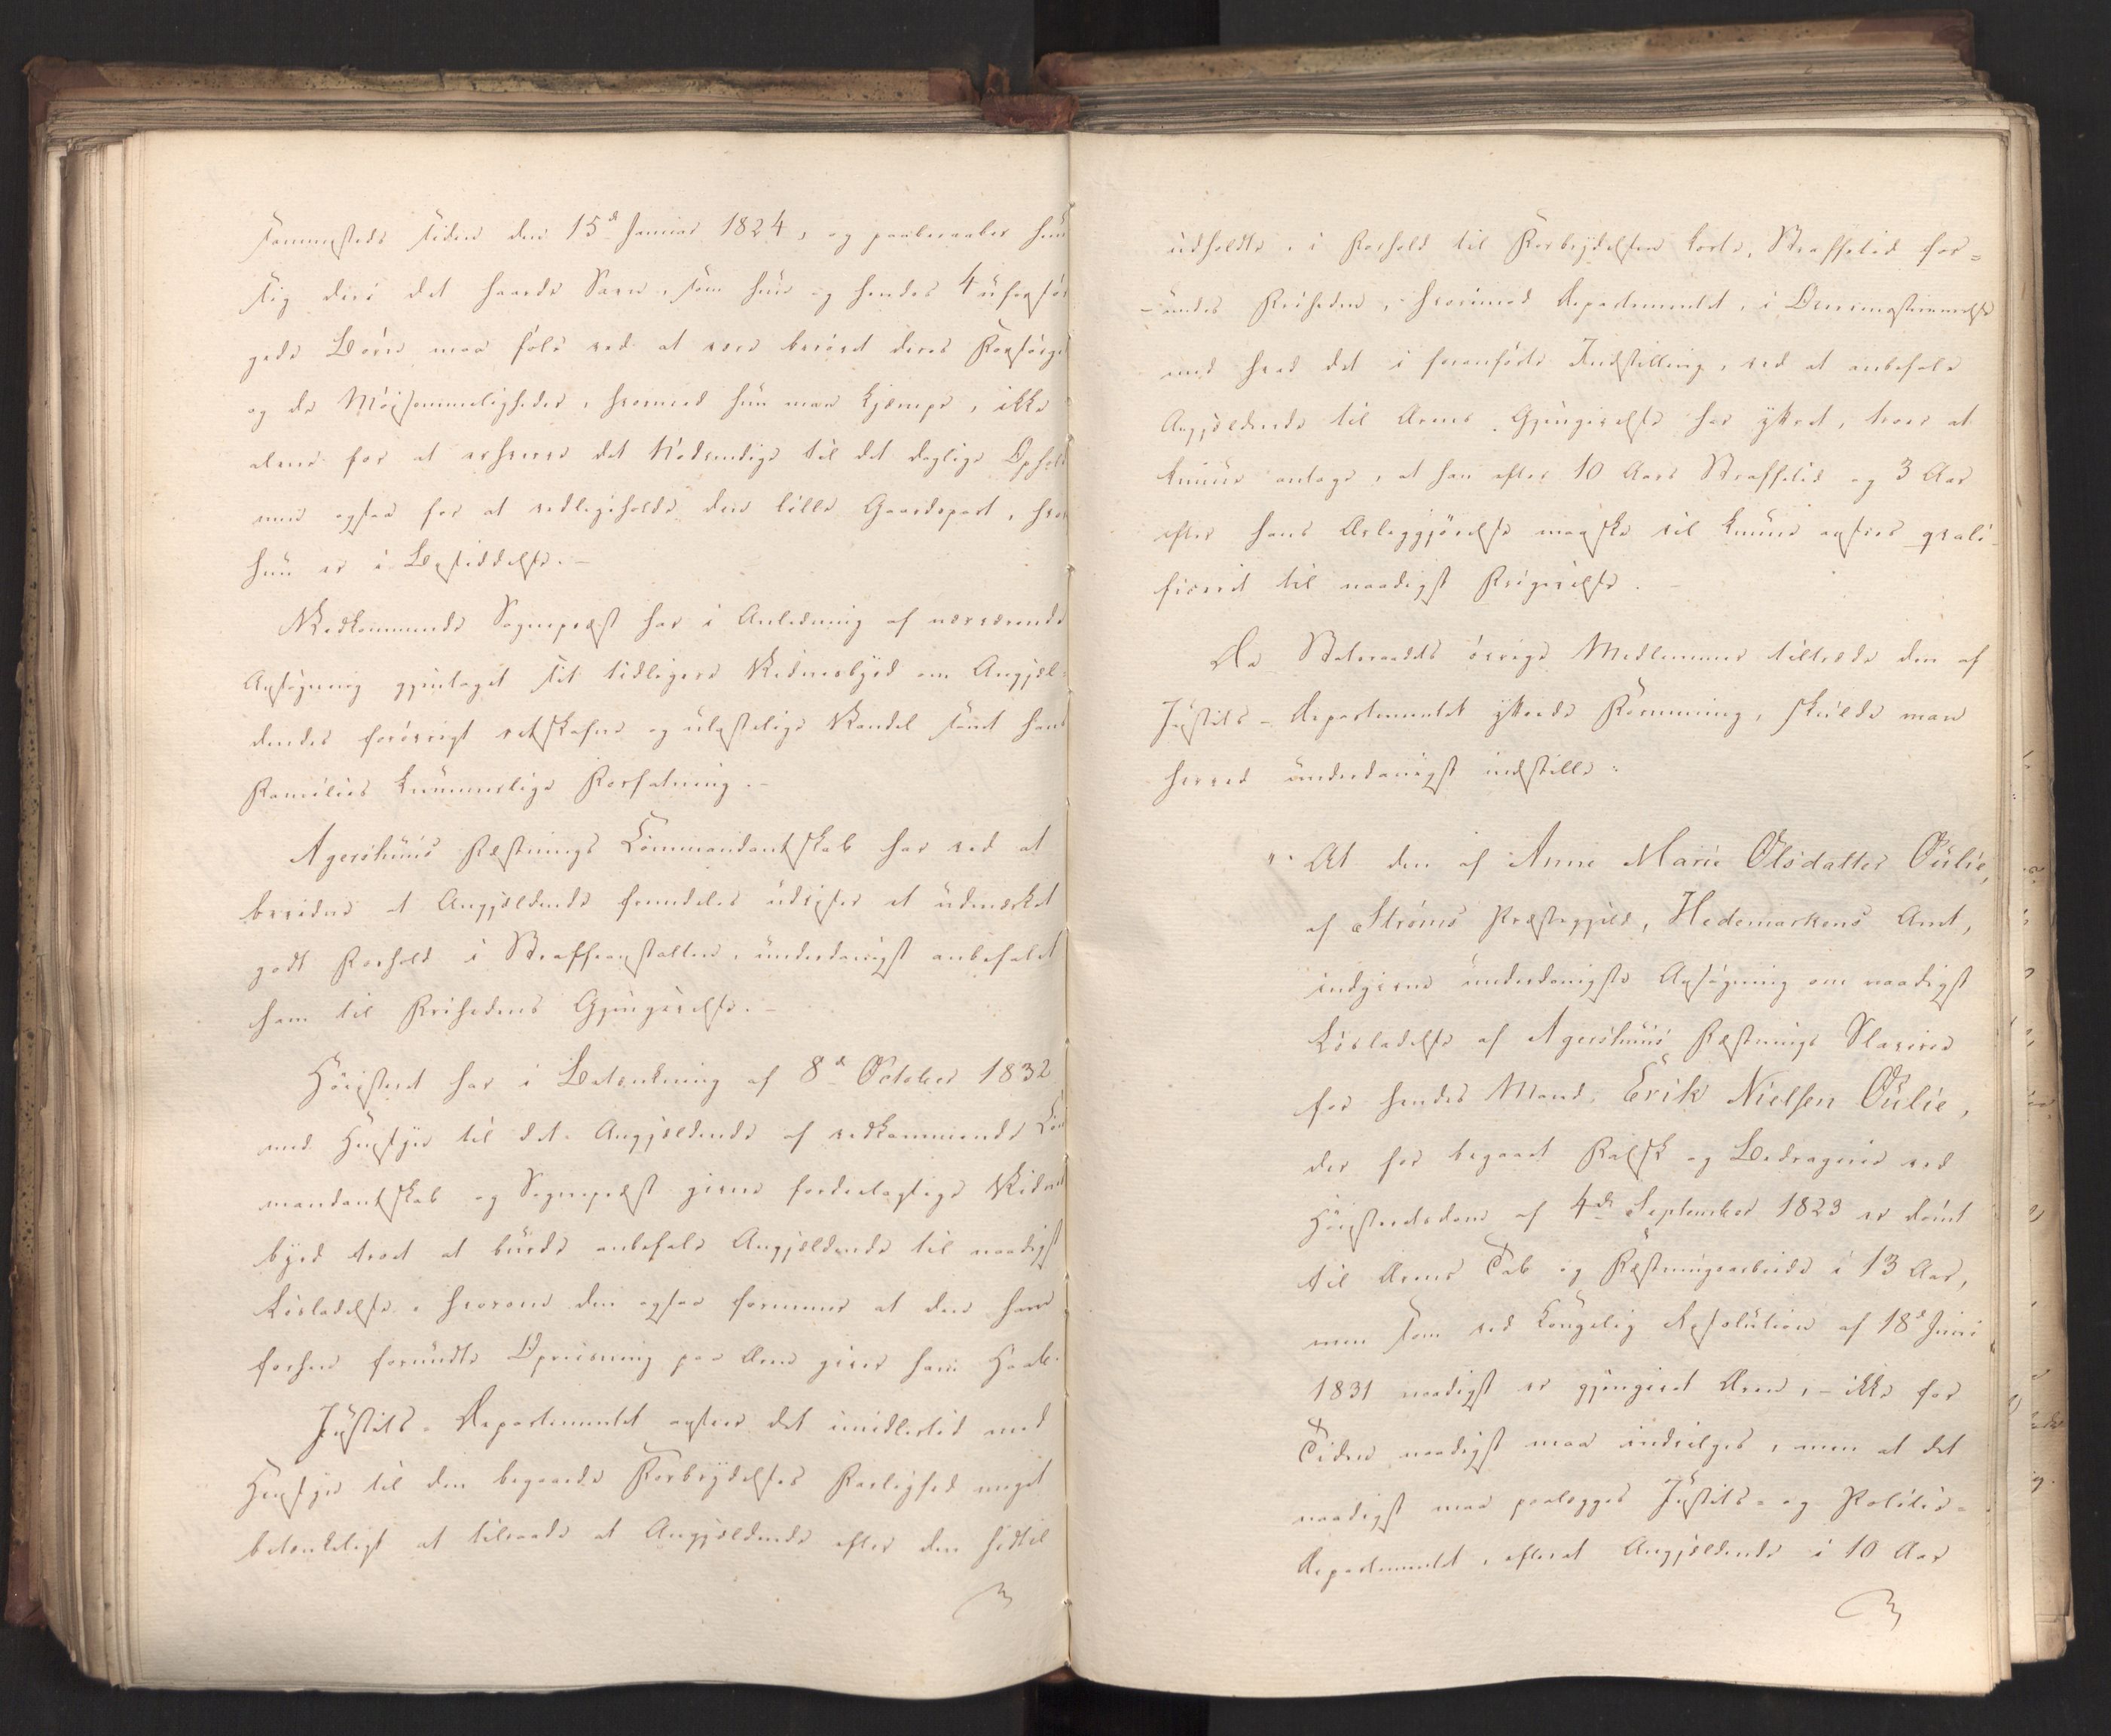 sammesteds siden den 15de Januar 1824, og paaberaaber hun
sig derie det haarde Savn, som hun og hendes 4 uforsør
gede Børn maa føle ved at være berøvet deres Forsørger
og de Møisommeligheder, hvormed hun maa kjæmpe, ikke
alene for at erhverve det Nødvendige til det daglige Ophold
men ogsaa for at vedligeholde den lille Gaardepart, hvor
hun er i Besiddelse.–
Vedkommende Sognepræst har i Anledning af nærværende
Ansøgning gjentaget sit tidligere Vidnesbyrd om Angjæl-
dendes forøvrigt retskafne og ulastelige Vandel samt hans
Families kummerlige Forfatning.–
Agershuus Fæstnings Commandantskab har ved at
bevidne at Angjældende fremdeles udviser et udmærket
godt Forhold i Straffeanstalten, underdanigst anbefalet
ham til Frihedens Gjengivelse.–
Høiesteret har i Betænkning af 8de October 1832
med Hensyn til det Angjældende af vedkommende Com
mandantskab og Sognepræst givne fordeelagtige Vidnes
byrd troet at burde anbefale Angjældende til naadigst
Løsladelse, hvorom den ogsaa formener at den ham
forhen forundte Opreisning paa Ære giver ham Haab.
Justits-Departementet anseer det imidlertid med
Hensyn til den begaaede Forbrydelses Farlighed meget
betænkeligt at tilraade at Angjældende efter den hidtil
udholdte, i Forhold til Forbrydelsen korte, Straffetid for=
-undes Friheden, hvorimod Departementet, i Overeensstemmelse
med hvad det i foranførte Indstilling, ved at anbefale
Angjældende til Ærens Gjengivelse har yttret, troer at
kunne antage, at han efter 10 Aars Straffetid og 3 Aar
efter hans Æreliggjørelse maaske vil kunne ansees qvali-
ficeret til naadigst Frigivelse.
Da Statsraadets øvrige Medlemmer tiltræde den af
Justits-Departementet yttrede Formening, skulde man
herved underdanigst indstille:
"At den af Anne Marie Olsdatter Oulie,
af Strøms Præstegjeld, Hedemarkens Amt,
indgivne underdanigste Ansøgning om naadigst
Løsladelse af Agershuus Fæstnings Slaverie
for hendes Mand, Erik Nielsen Oulie,
der for begaaet Falsk og Bedragerie ved
Høiesteretsdom af 4de September 1823 er dømt
til Ærens Tab og Fæstningsarbeide i 13 Aar,
men som ved Kongelig Resolution af 18de Juni
1831 naadigst er gjengivet Æren, – ikke for
Tiden naadigst maa indvilges, men at det
naadigst maa paalægges Justits- og Politie-
Departementet, efterat Angjældende i 10 Aar